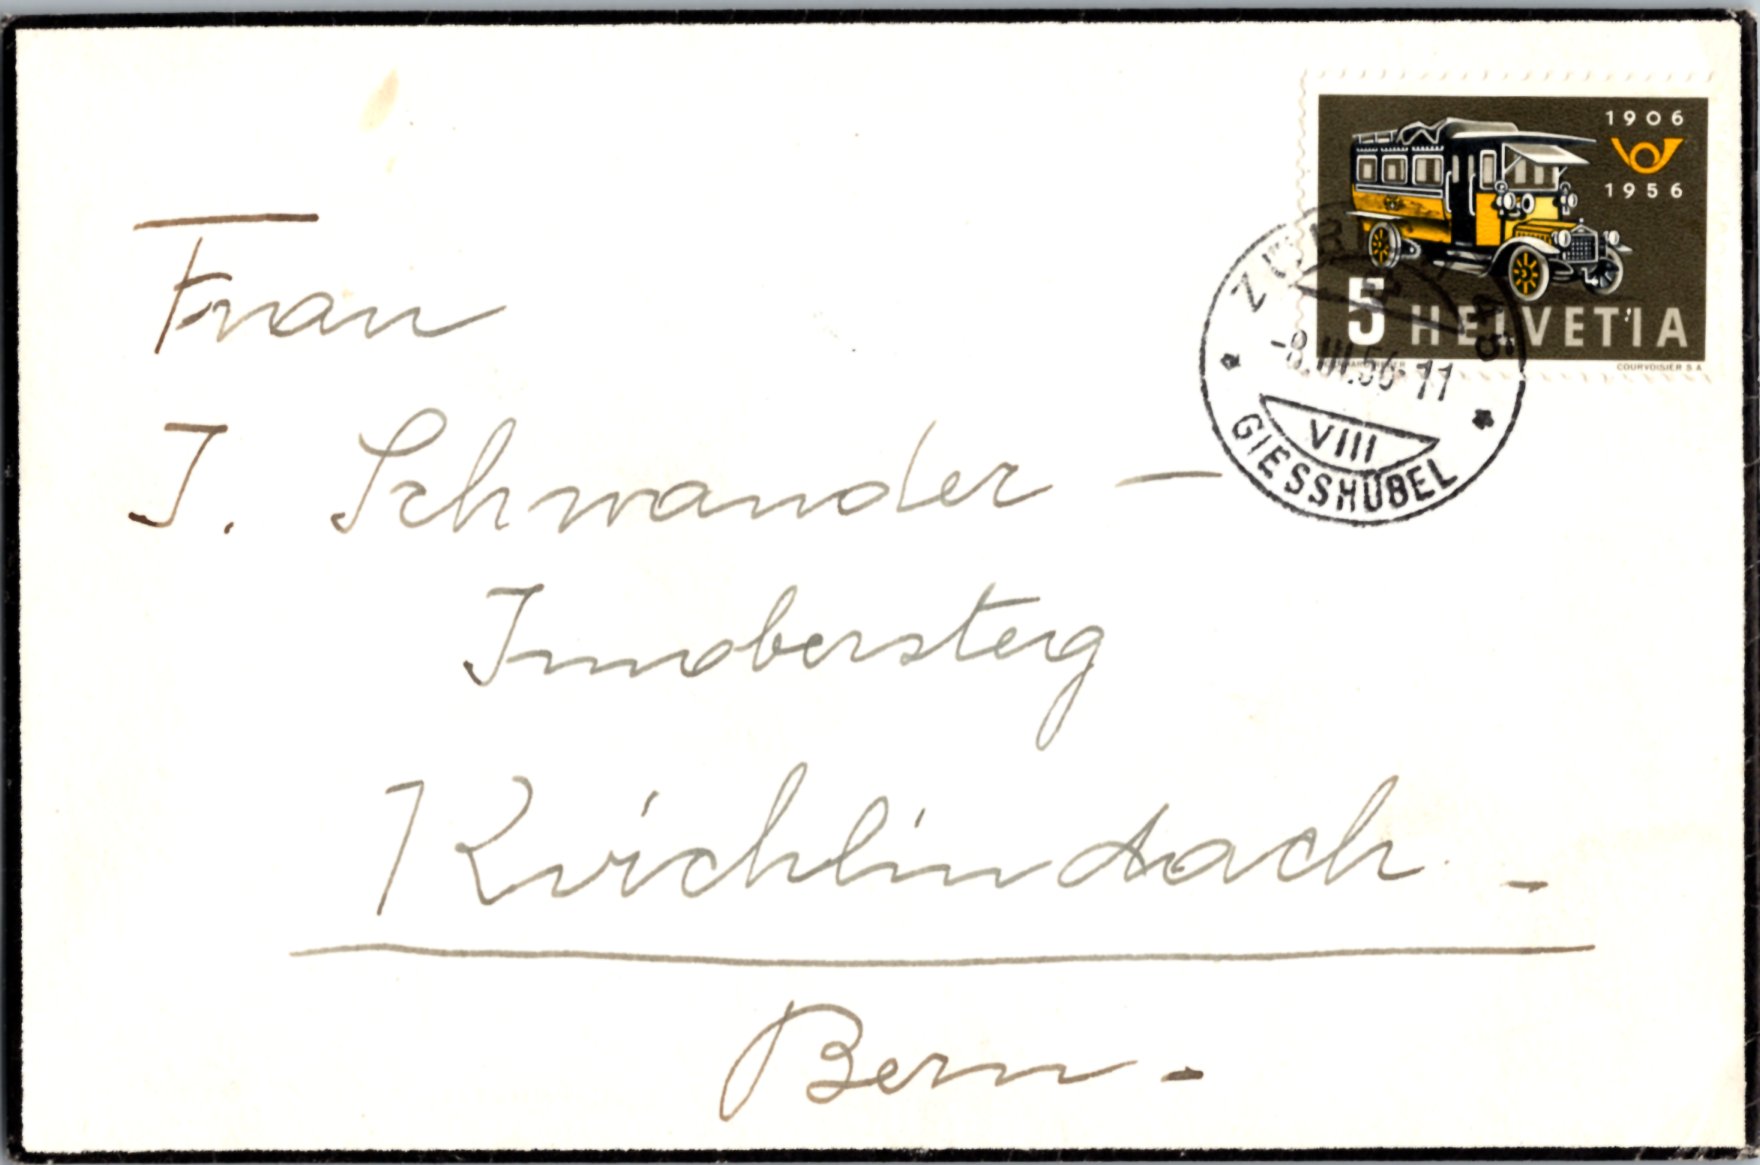 1906
1956
5 HELVETIA
COURVOISIER S A
ZÜRICH 45
-8.III.56-11
VIII
GIESSHÜBEL
Frau
J. Schwander –
Innerbersteig
Kirchlindach –
Bern –